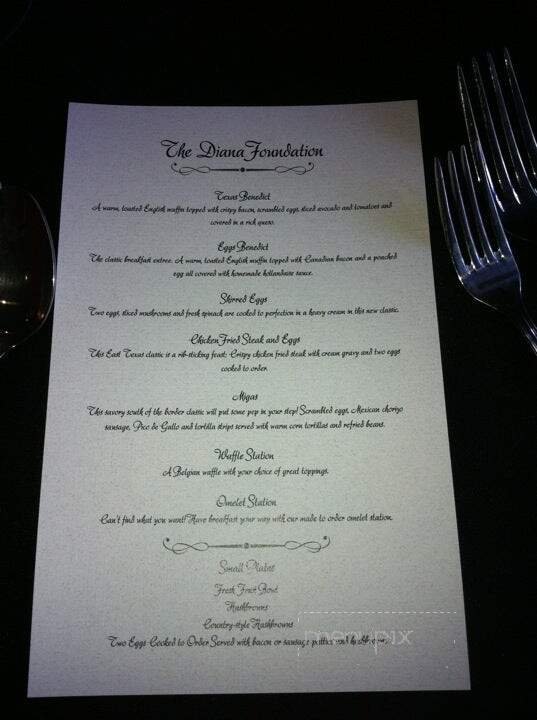 The Diana Foundation
Texas Benedict
A warm, toasted English muffin topped with crispy bacon, scrambled eggs, sliced avocado and tomatoes and
covered in a rich queso.
Eggs Benedict
The classic breakfast entree. A warm, toasted English muffin topped with Canadian bacon and a poached
egg all covered with homemade hollandaise sauce.
Shirred Eggs
Two eggs, sliced mushrooms and fresh spinach are cooked to perfection in a heavy cream in this new classic.
Chicken Fried Steak and Eggs
This East Texas classic is a rib-sticking feast: Crispy chicken fried steak with cream gravy and two eggs
cooked to order.
Migas
This savory south of the border classic will put some pep in your step! Scrambled eggs, Mexican chorizo
sausage, Pico de Gallo and tortilla strips served with warm corn tortillas and refried beans.
Waffle Station
A Belgian waffle with your choice of great toppings.
Omelet Station
Can't find what you want? Have breakfast your way with our made to order omelet station.
Small Plates
Fresh Fruit Bowl
Hashbrowns
Country-style Hashbrowns
Two Eggs Cooked to Order Served with bacon or sausage patties and
menupix